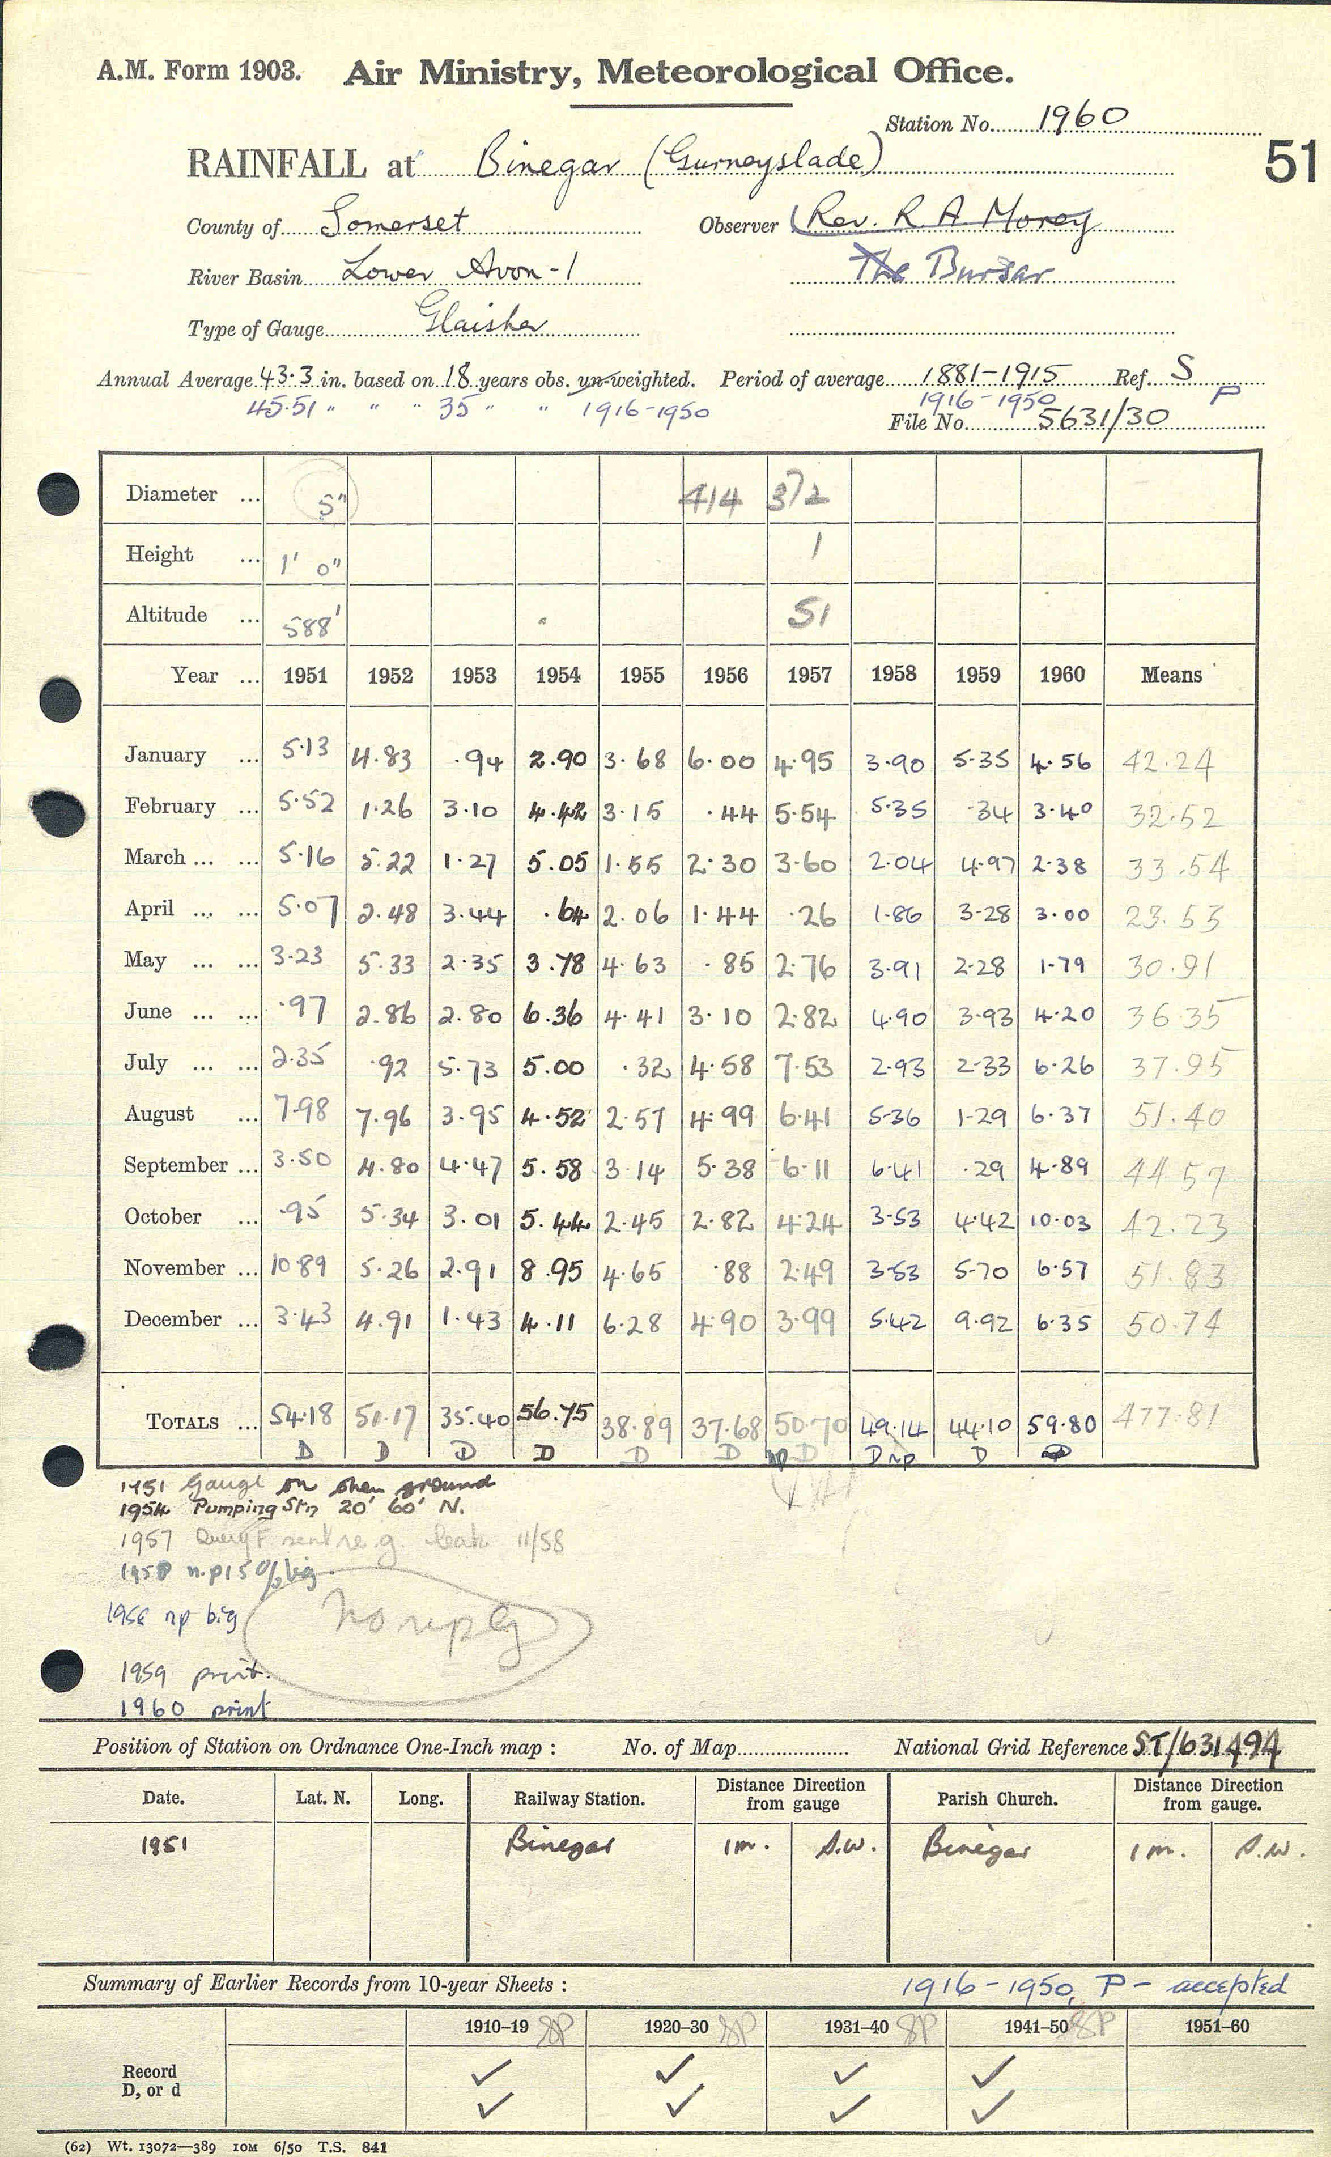 A.M. Form 1903. Air Ministry, Meteorological Office.
Station No. 1960
51
RAINFALL at Binegar (Gurneyslade)
County of Somerset Observer Rev. R A Morey
River Basin Lower Avon-1 The Bursar
Type of Gauge Glaisher
Annual Average 43.3 in. based on 18 years obs. un-weighted. Period of average 1881-1915 Ref. S
45.51 " " " 35 " " 1916-1950 1916-1950 P
File No. 5631/30
Diameter ... 5" 414 372
Height ... 1' 0" 1
Altitude ... 588' 51
Year ... 1951 1952 1953 1954 1955 1956 1957 1958 1959 1960 Means
January ... 5.13 4.83 .94 2.90 3.68 6.00 4.95 3.90 5.35 4.56 42.24
February ... 5.52 1.26 3.10 4.42 3.15 .44 5.54 5.35 .34 3.40 32.52
March ... ... 5.16 5.22 1.27 5.05 1.55 2.30 3.60 2.04 4.97 2.38 33.54
April ... ... 5.07 2.48 3.44 .64 2.06 1.44 .26 1.86 3.28 3.00 23.53
May ... ... 3.23 5.33 2.35 3.78 4.63 .85 2.76 3.91 2.28 1.79 30.91
June ... ... .97 2.86 2.80 6.36 4.41 3.10 2.82 4.90 3.93 4.20 36.35
July ... ... 2.35 .92 5.73 5.00 .32 4.58 7.53 2.93 2.33 6.26 37.95
August ... 7.98 7.96 3.95 4.52 2.57 4.99 6.41 5.36 1.29 6.37 51.40
September ... 3.50 4.80 4.47 5.58 3.14 5.38 6.11 6.41 .29 4.89 44.57
October ... .95 5.34 3.01 5.44 2.45 2.82 4.24 3.53 4.42 10.03 42.23
November ... 10.89 5.26 2.91 8.95 4.65 .88 2.49 3.53 5.70 6.57 51.83
December ... 3.43 4.91 1.43 4.11 6.28 4.90 3.99 5.42 9.92 6.35 50.74
TOTALS ... 54.18 51.17 35.40 56.75 38.89 37.68 50.70 49.14 44.10 59.80 477.81
D D D D D D np D D np D D
1951 Gauge on open ground
1954 Pumping Stn 20' 60' N.
1957 Query F sent re g. leak 11/58
n.p 15% big
np big
no reply
1959 print.
1960 print
Position of Station on Ordnance One-Inch map : No. of Map National Grid Reference ST/631494
Date. Lat. N. Long. Railway Station. Distance Direction from gauge Parish Church. Distance Direction from gauge.
1951 Binegar 1m. S.W. Binegar 1m. S.W.
Summary of Earlier Records from 10-year Sheets : 1916-1950, P- accepted
1910-19 SP 1920-30 SP 1931-40 SP 1941-50 SP 1951-60
Record ✓ ✓ ✓ ✓
D, or d ✓ ✓ ✓ ✓
(62) Wt. 13072—389 10M 6/50 T.S. 841